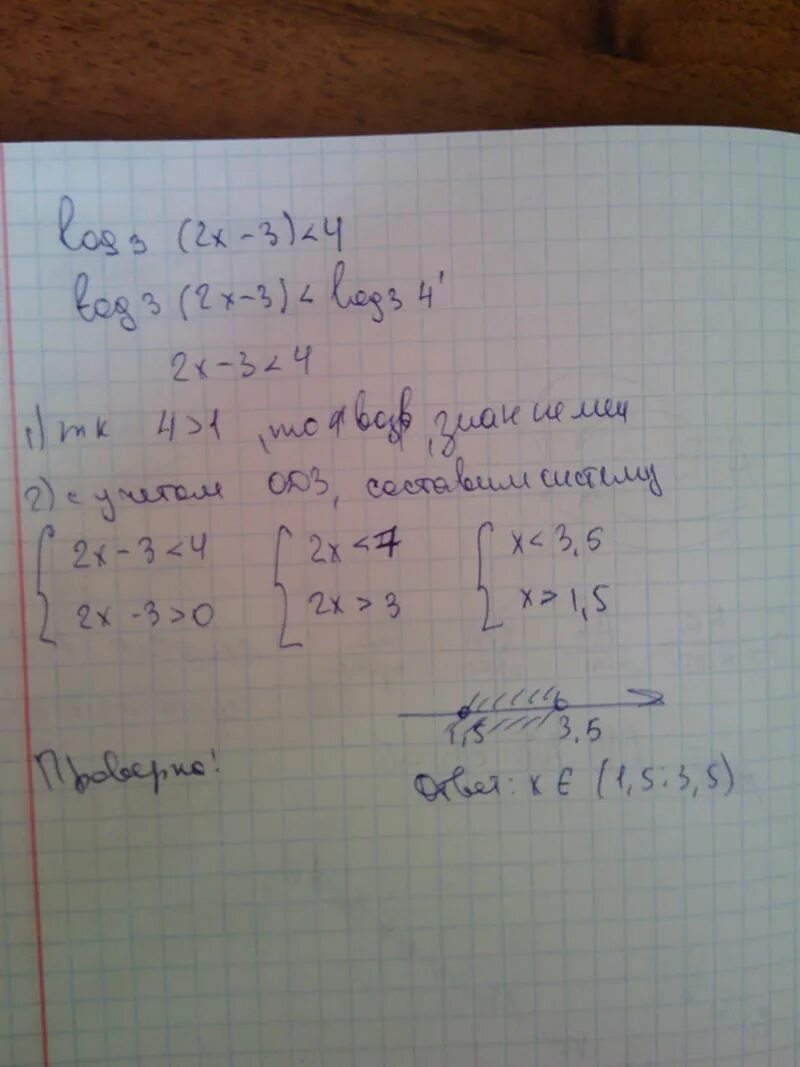 log 3 (2x-3)<4
log 3 (2x-3)<log 3 4
2x-3<4
1) тк 4>1, то возв, знак не мен
2) с учетом ОДЗ, составим систему
2x-3<4 2x<7 x<3,5
2x-3>0 2x>3 x>1,5
1,5 3,5
Проверно!
Ответ: x ∈ (1,5;3,5)